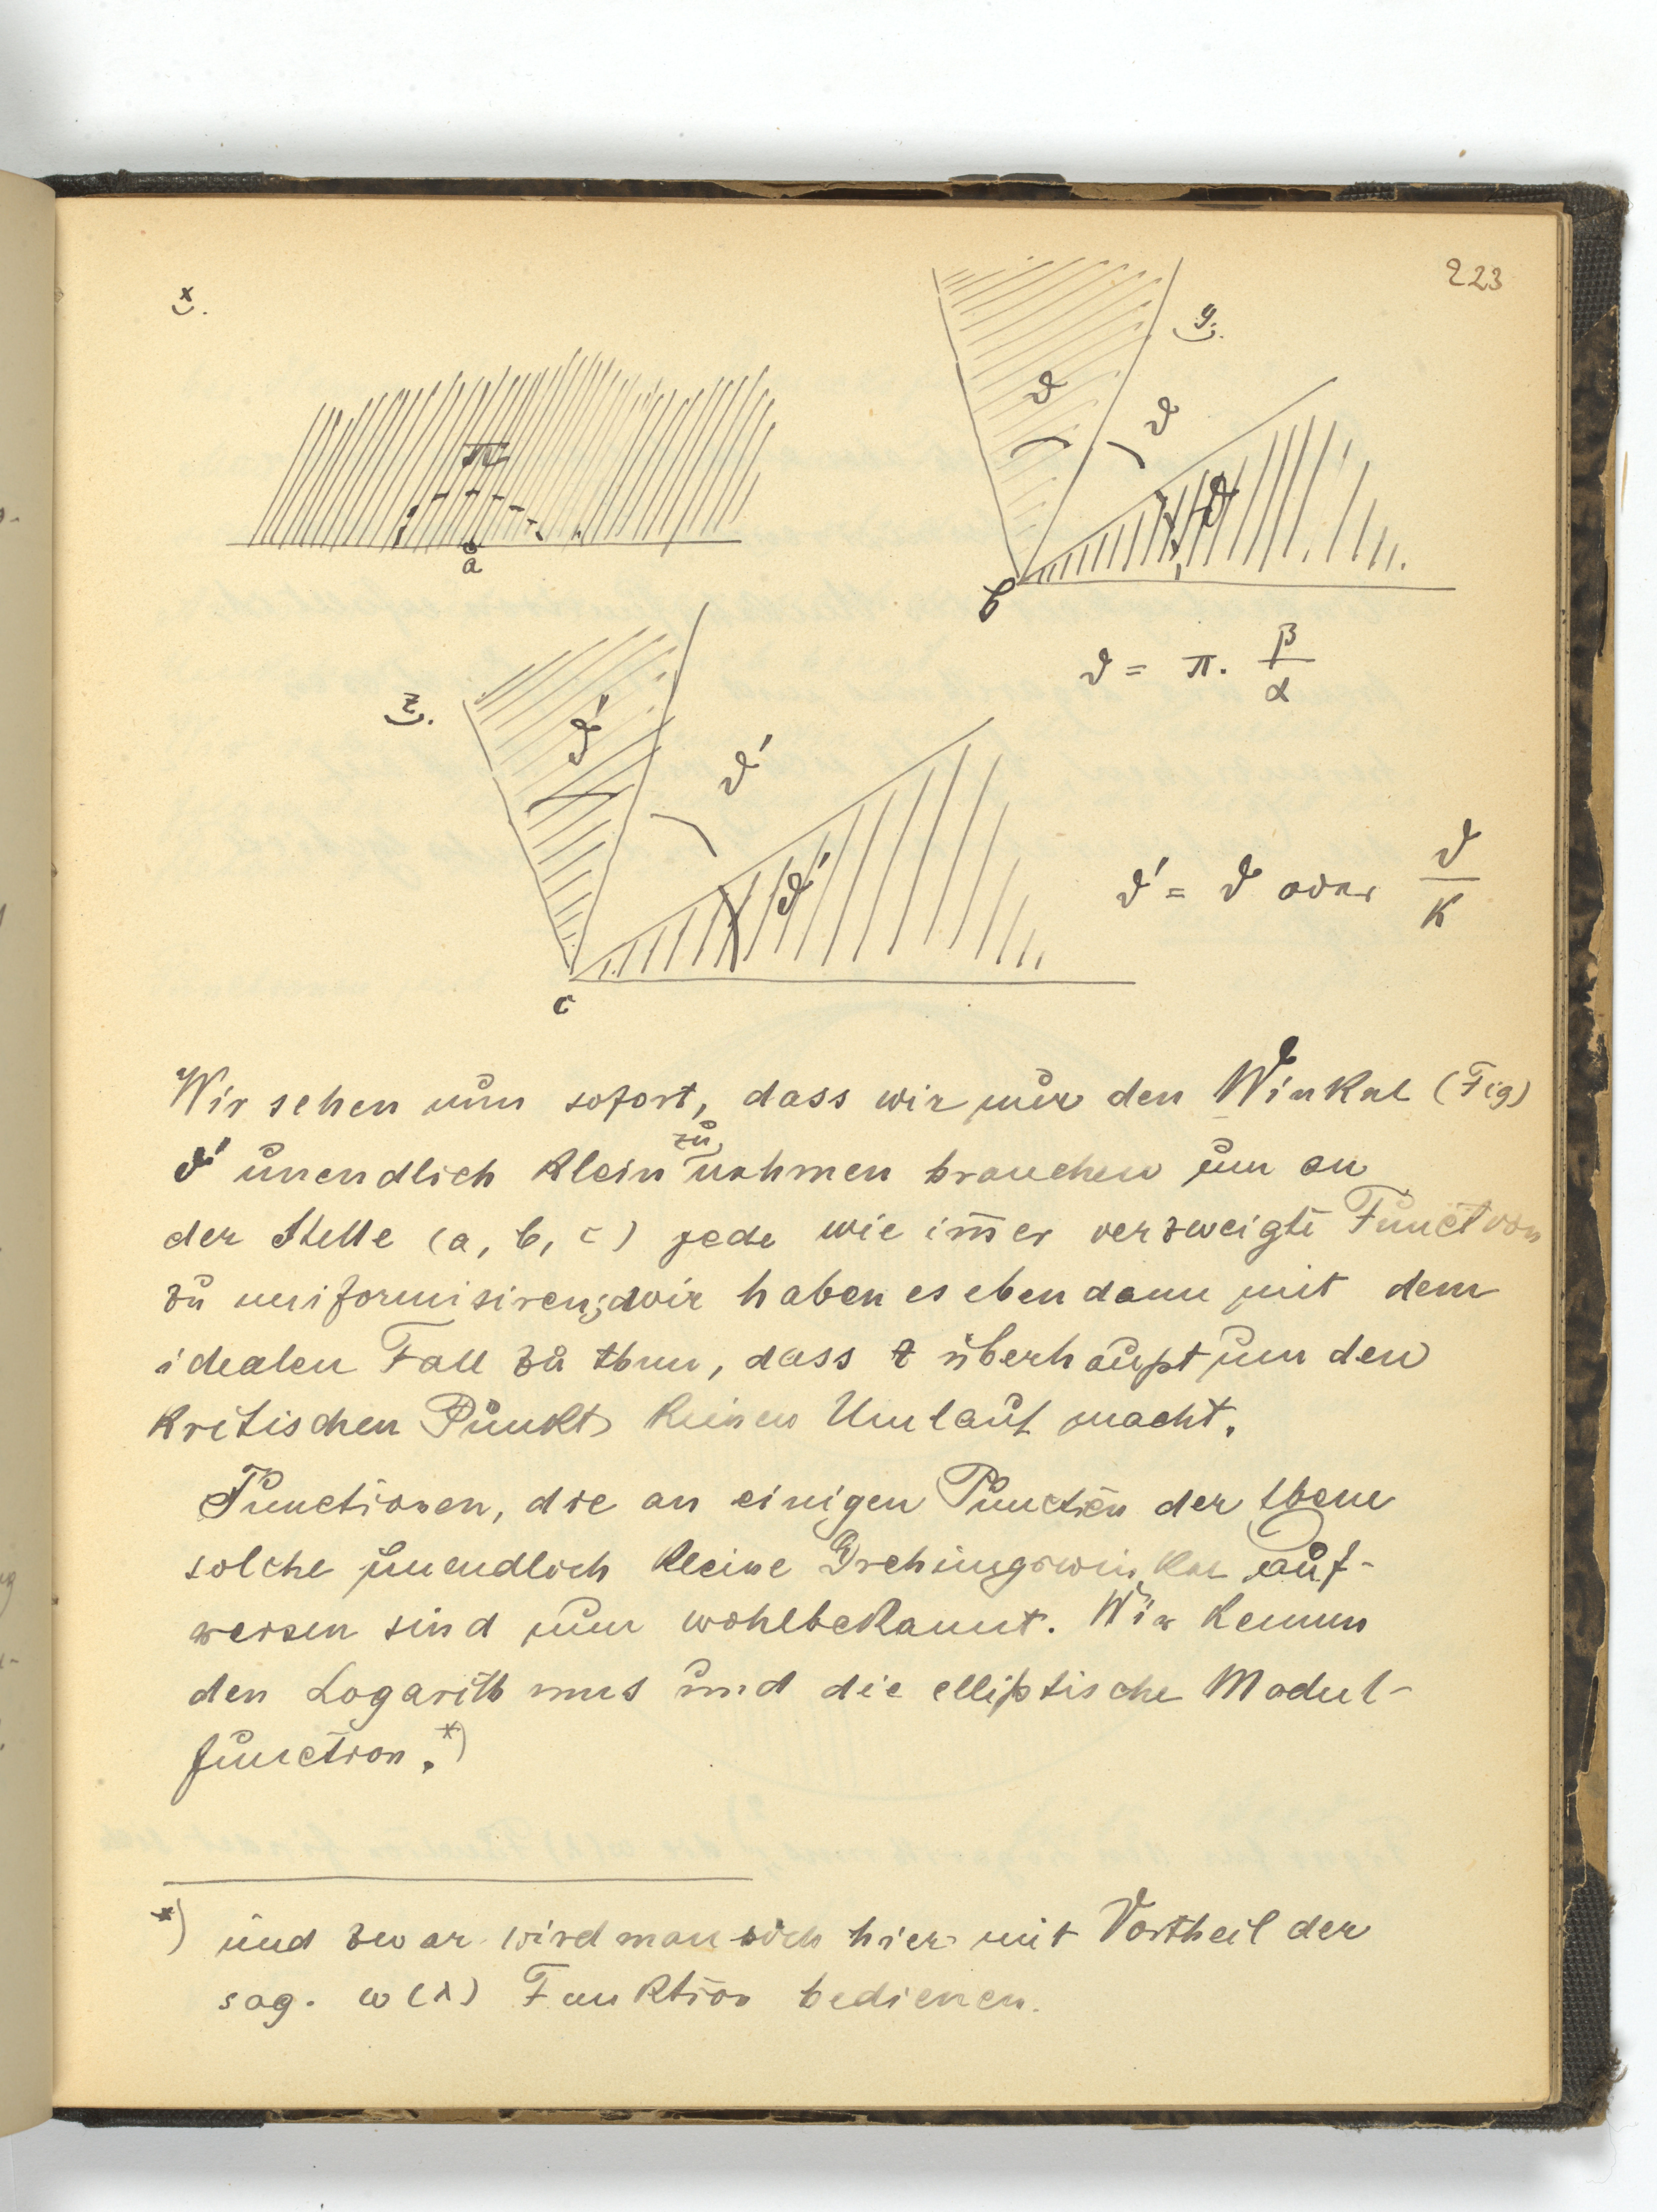 223
x.
y.
π
ϑ
ϑ
ϑ
a
b
ϑ = π. β/α
z.
ϑ'
ϑ'
ϑ'
ϑ' = ϑ oder ϑ/k
c
Wir sehen nun sofort, dass wir nur den Winkel (Fig)
ϑ' unendlich klein zu nehmen brauchen um an
der Stelle (a, b, c) jede wie im̅er verzweigte Function
zu uniformisiren; wir haben es eben dann mit dem
idealen Fall zu thun, dass z überhaupt um den
kritischen Punkt keinen Umlauf macht.
Functionen, die an einigen Puncten der Ebene
solche unendlich kleine Drehungswinkel auf-
weisen sind nun wohlbekannt. Wir kennen
den Logarithmus und die elliptische Modul-
function.*)
*) und zwar wird man sich hier mit Vortheil der
sog. ω(λ) Funktion bedienen.